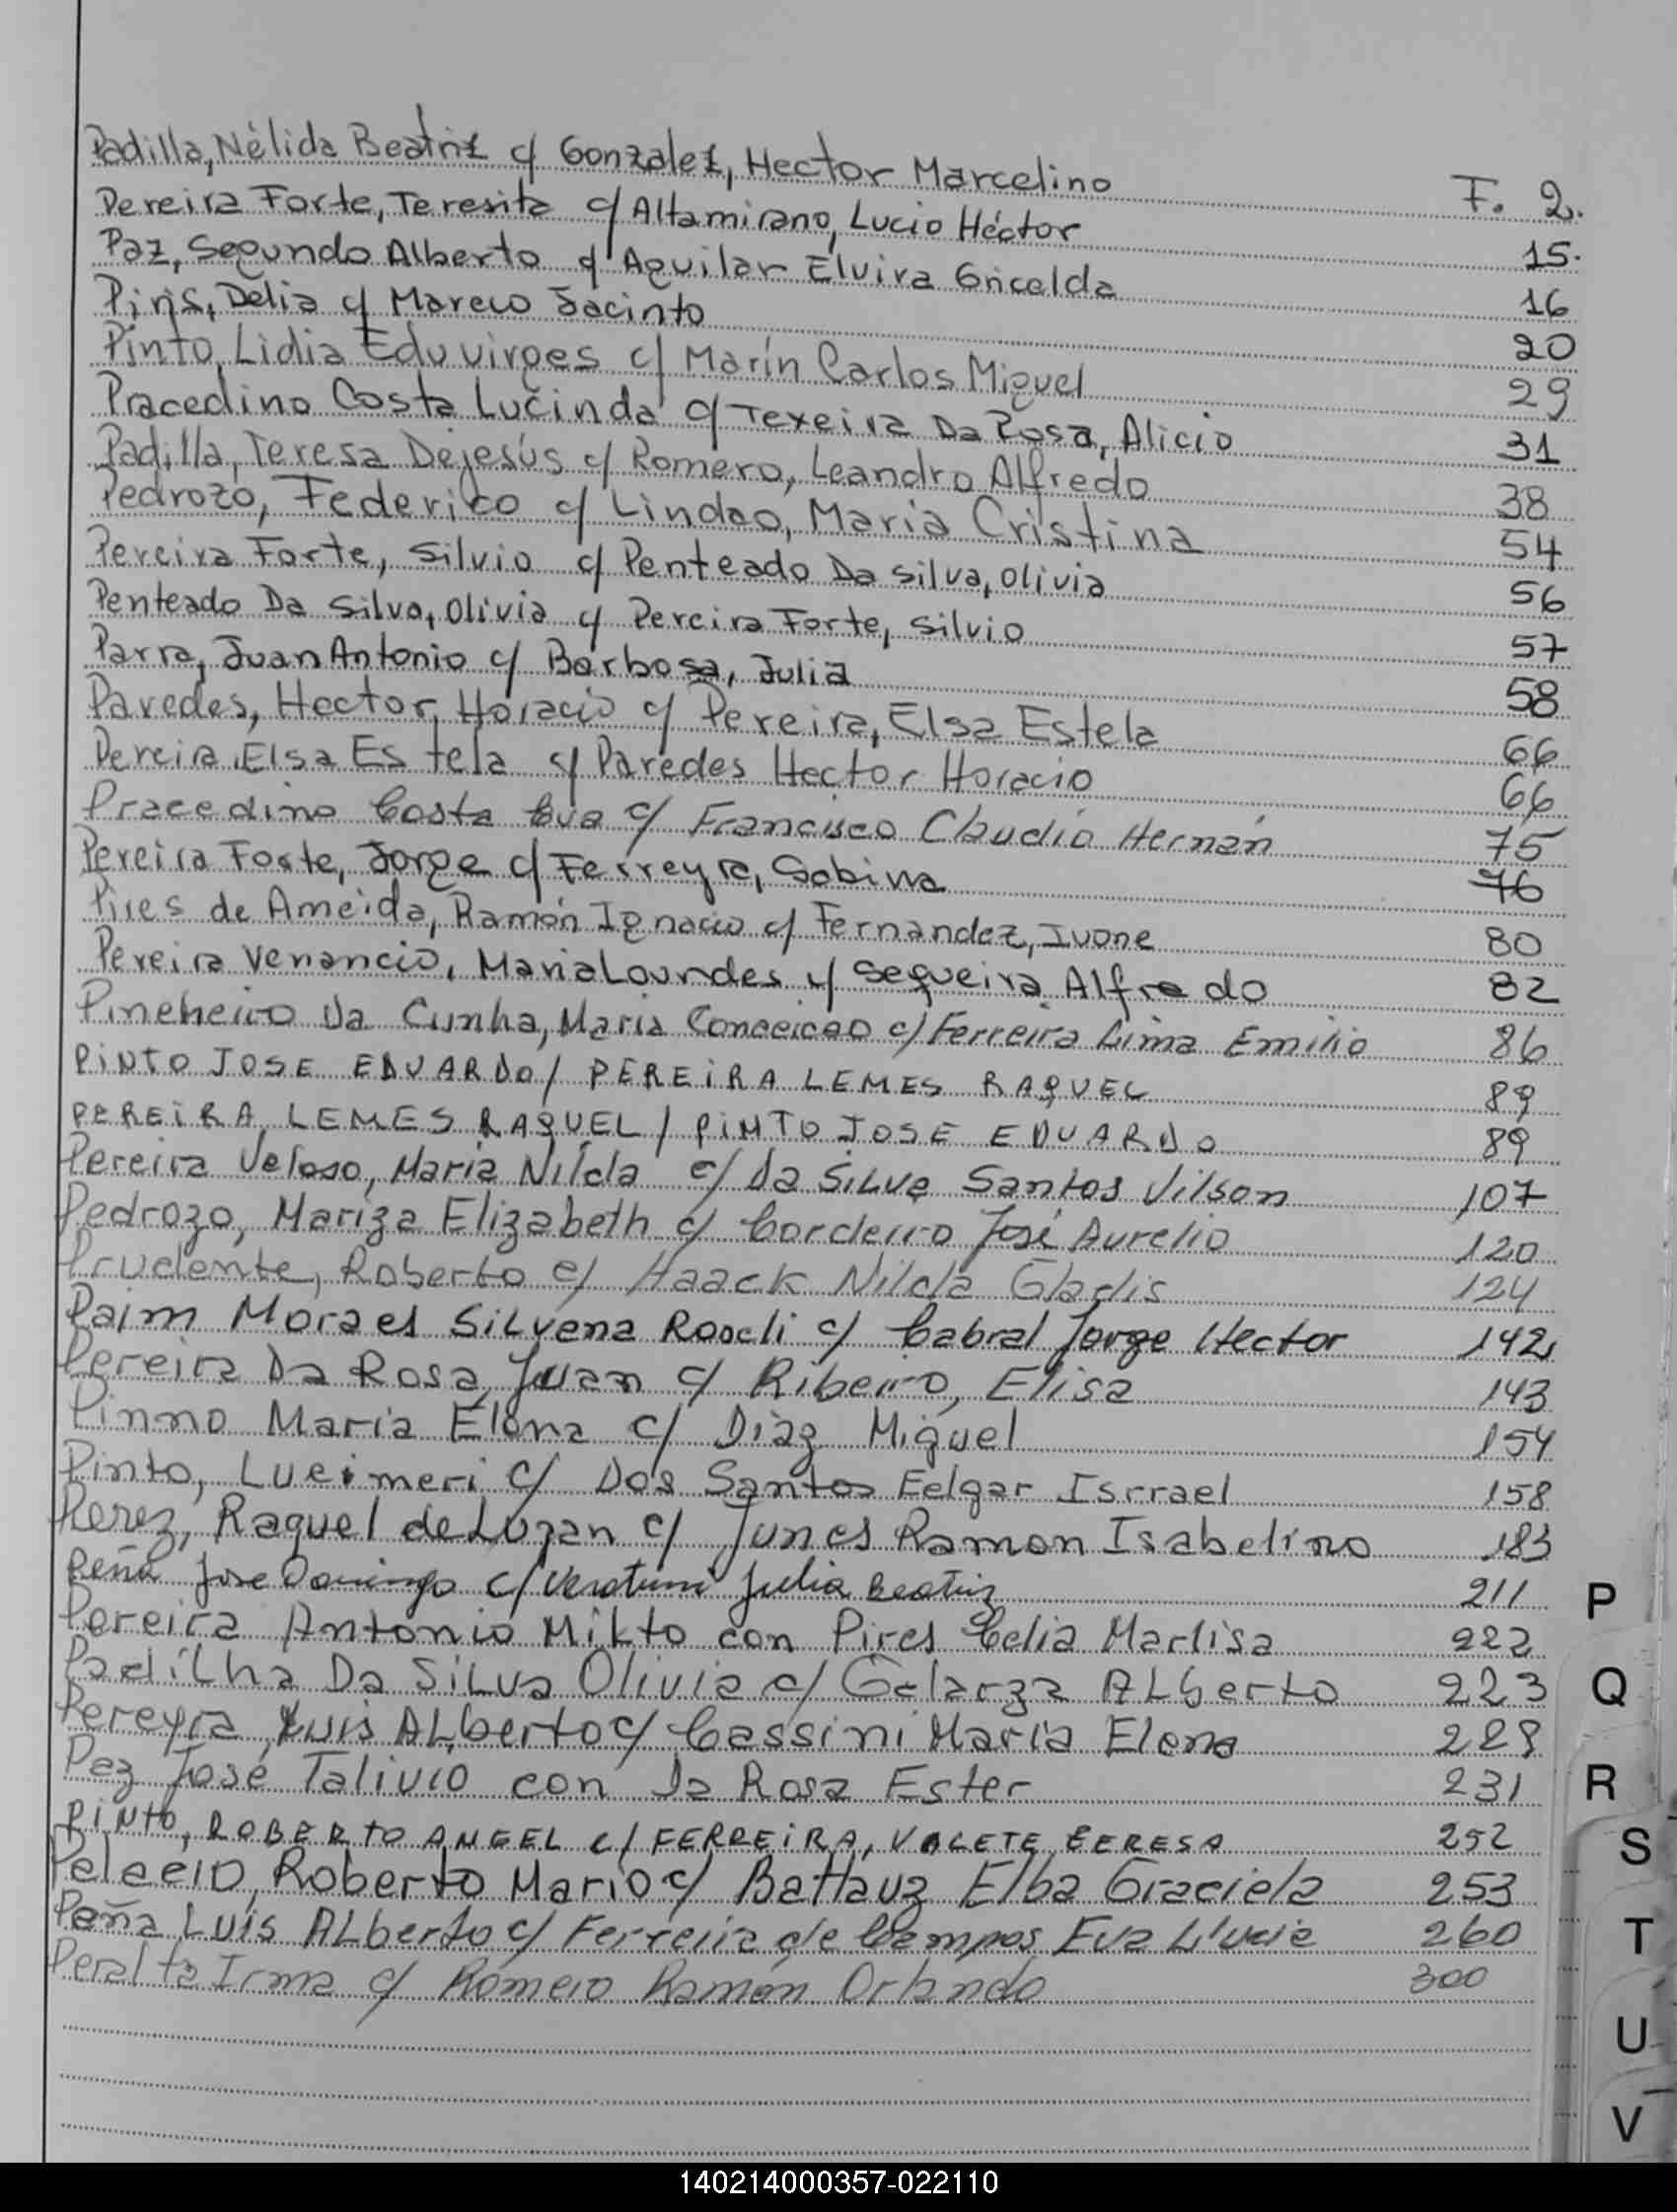 Padilla, Nélida Beatriz c/ Gonzalez, Hector Marcelino F. 2.
Pereira Forte, Teresita c/ Altamirano, Lucio Héctor 15.
Paz, Segundo Alberto c/ Aguilar Elvira Gricelda 16
Piris, Delia c/ Marcio Jacinto 20
Pinto, Lidia Eduvirges c/ Marín Carlos Miguel 29
Pracedino Costa Lucinda c/ Texeira Da Rosa, Alicio 31
Padilla, Teresa Dejesús c/ Romero, Leandro Alfredo 38
Pedrozo, Federico c/ Lindao, María Cristina 54
Pereira Forte, Silvio c/ Penteado Da Silva, Olivia 56
Penteado Da Silva, Olivia c/ Pereira Forte, Silvio 57
Parra, Juan Antonio c/ Barbosa, Julia 58
Paredes, Hector Horacio c/ Pereira, Elsa Estela 66
Pereira, Elsa Estela c/ Paredes Hector Horacio 66
Pracedino Costa Eva c/ Francisco Claudio Hernán 75
Pereira Forte, Jorge c/ Ferreyra, Sabina 76
Pires de Ameida, Ramón Ignacio c/ Fernandez, Ivone 80
Pereira Venancio, Maria Lourdes c/ Sequeira Alfredo 82
Pineheiro Da Cunha, Maria Conceicao c/ Ferreira Lima Emilio 86
PINTO JOSE EDUARDO / PEREIRA LEMES RAQUEL 89
PEREIRA LEMES RAQUEL / PINTO JOSE EDUARDO 89
Pereira Veloso, Maria Nilda c/ Da Silva Santos Vilson 107
Pedrozo, Mariza Elizabeth c/ Cordeiro José Aurelio 120
Prudente, Roberto c/ Haack Nilda Gladis 124
Paim Moraes Silvena Rooeli c/ Cabral Jorge Hector 142
Pereira Da Rosa, Juan c/ Ribeiro, Elisa 143
Pinno Maria Elena c/ Diaz Miguel 154
Pinto, Lucimeri c/ Dos Santos Eelgar Isrrael 158
Perez, Raquel de Lujan c/ Junes Ramon Isabelino 183
Peña Jose Domingo c/ Julia Beatriz 211
Pereira Antonio Mikto con Pires Celia Marlisa 222
Padilha Da Silva Olivia c/ Galarza Alberto 223
Pereyra, Luis Alberto c/ Cassini Maria Elena 229
Paz José Talivio con Da Rosa Ester 231
PINTO, ROBERTO ANGEL c/ FERREIRA, VALETE TERESA 252
Pelecio, Roberto Mario c/ Battauz Elba Graciela 253
Peña Luis Alberto c/ Ferreira de Campos Eva Lucia 260
Peralta Irma c/ Romero Ramón Orlando 300
P
Q
R
S
T
U
V
140214000357-022110